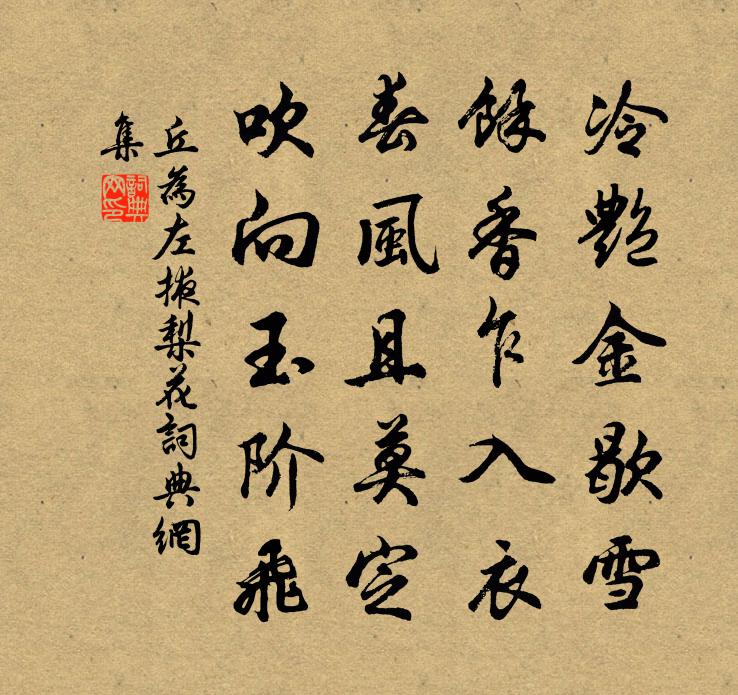 冷艷金歇雪
餘香乍入衣
春風且莫定
吹向玉阶飛
丘為左掖梨花詞典網
集
詞典
网印